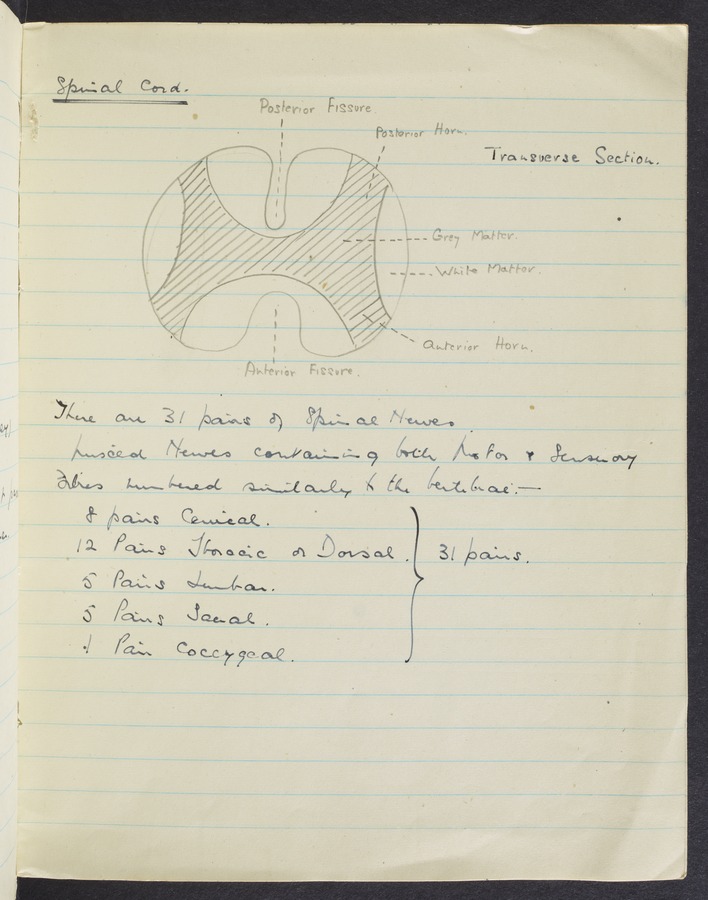 Spinal Cord.
Posterior Fissure.
Posterior Horn.
Transverse Section.
Grey Matter.
White Matter.
Anterior Horn.
Anterior Fissure.
There are 31 pairs of Spinal Nerves.
Nerves containing both Motor & Sensory
Fibres numbered similarly to the vertebrae:—
8 pairs Cervical.
12 Pairs Thoracic or Dorsal.
31 pairs.
5 Pairs Lumbar.
5 Pairs Sacral.
1 Pair Coccygeal.